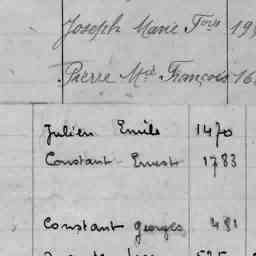 Joseph Marie Fçois 19
Pierre Mie François 16
Julien Emile 1470
Constant Ernest 1783
Constant Georges 481